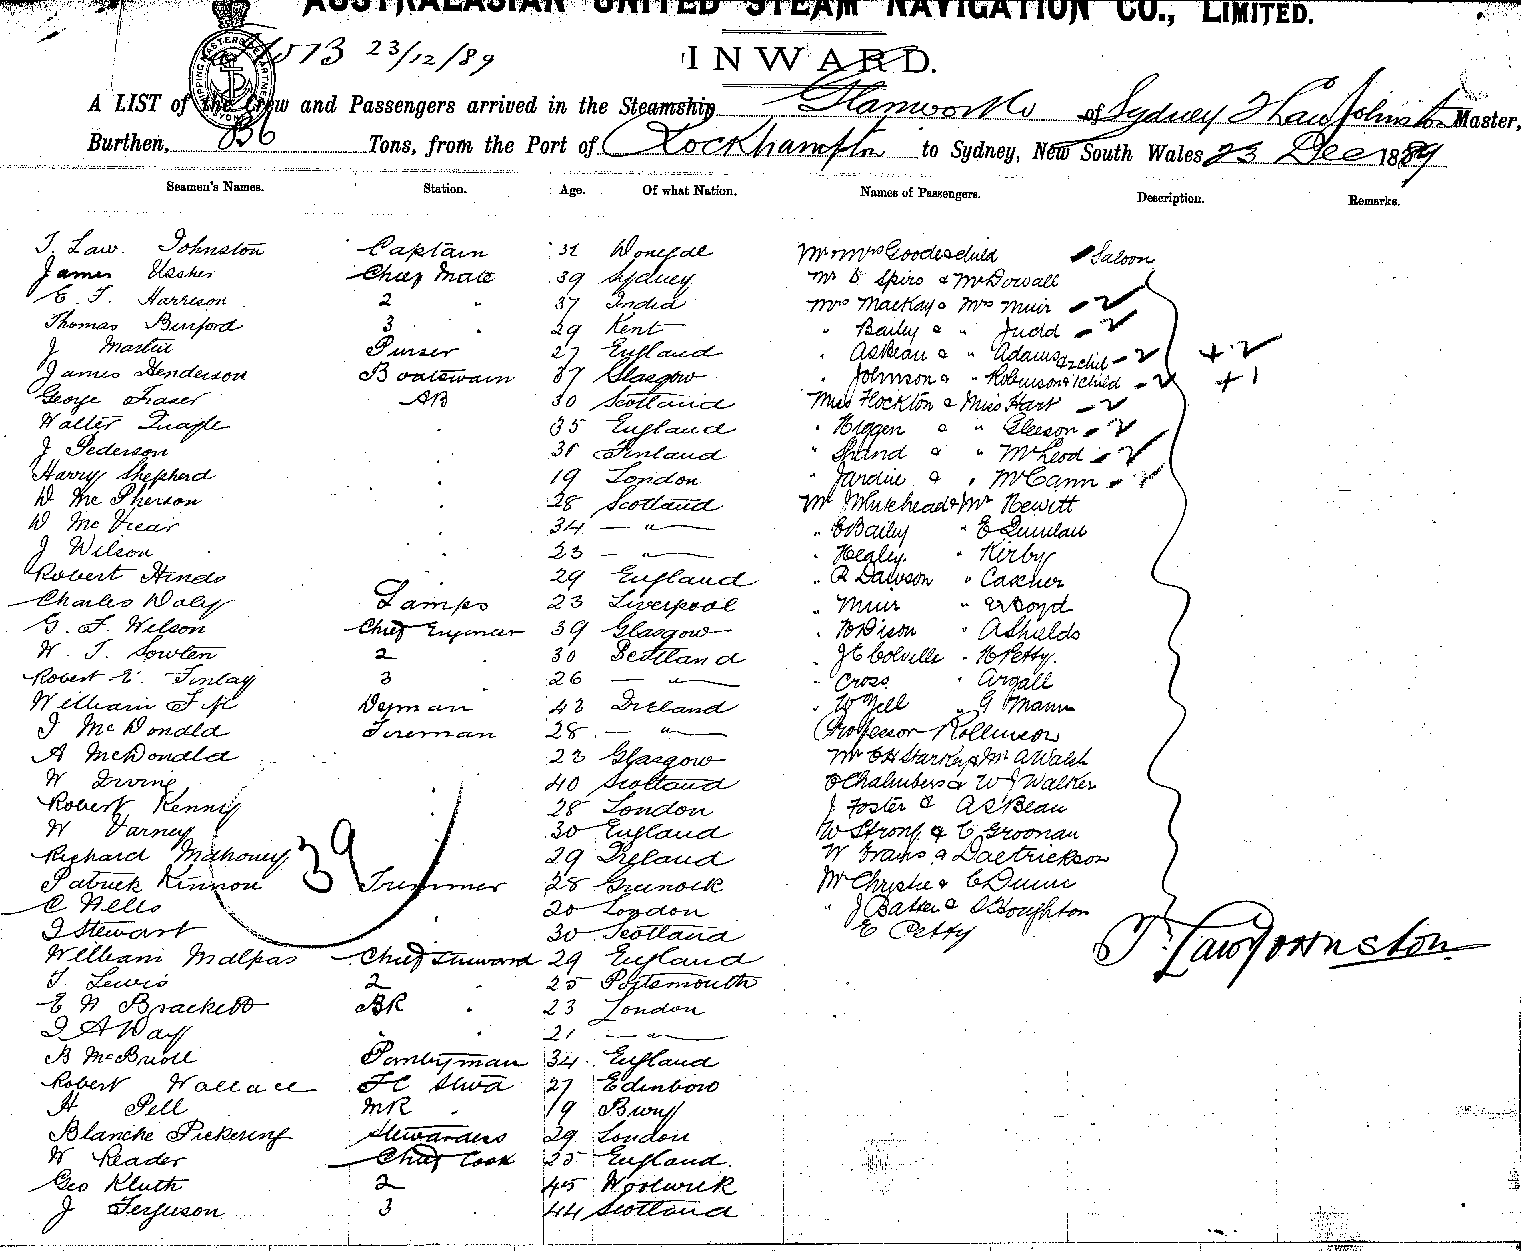 AUSTRALASIAN UNITED STEAM NAVIGATION CO., LIMITED.
23/12/89
INWARD.
A LIST of the Crew and Passengers arrived in the Steamship Glanworth of Sydney T Law Johnston Master,
Burthen, Tons, from the Port of Rockhampton to Sydney, New South Wales 23 Dec 1889
Seamen's Names. Station. Age. Of what Nation. Names of Passengers. Description. Remarks.
T. Law. Johnston Captain Mr & Mrs Goodechild Saloon
James Ussher Chief Mate 39 Sydney Mr D Spiro & McDowall
E. T. Harrison 2 " 37 India Mrs MacKay & Mrs Muir
Thomas Binford 3 " 29 Kent " Bailey & " Judd
J Martin Purser 27 England " AsBeau & " Adams 2 child + 2
James Henderson Boatswain 37 Glasgow " Johnson & " Robinson & 1 child + 1
George Fraser AB 30 Scotland Miss Flockton & Miss Hart
Walter Quayle 35 England " Higgen & " Gleeson
J Pederson Finland " Shand & " McLeod
Harry Shepherd 19 London " Jardine & " McCann
D McPherson 28 Scotland Mr Muirhead & Mr Hewitt
D McVicar 34 — " — " E Bailey " E Quinlan
J Wilson 23 — " — " Healey " Kirby
Robert Hinds 29 England " R Dawson " Castner
Charles Daly Lamps 23 Liverpool " Muir " Boyd
G. F. Wilson Chief Engineer 39 Glasgow " Dison " A Shields
W. T. Sowlen 2 " 30 Scotland " J E Colville " H Petty.
Robert E. Finlay 3 26 — " — " Cross " Argall
William Dkyman 43 Ireland " W Zell " G Mann
J McDonald Fireman 28 — " — Professor Rollinson
A McDonald 23 Glasgow Mr C H Starkey & Mr A Walsh
W Irvine 40 Scotland Chalmbers & W J Walker
Robert Kenny 28 London J Foster & AsBeau
W Varney 30 England W Strong & C Groonan
Richard Mahoney 29 Ireland W Evans & Daetrickson
39
Patrick Kinnon Trimmer 28 Greenock Mr Christie & C Dunn
C Wells 20 London " J Batten & Houghton
J Stewart 30 Scotland E Petty
T. Law Johnston
William Malpas Chief Steward 29 England
T. Lewis 2 " 25 Portsmouth
E W Brackett BR " 23 London
J A Day " " 21 — " —
B McBride Pantryman 34 England
Robert Wallace FC Stwd 27 Edinboro
H Pell MR " 19 Bury
Blanche Pickering Stewardess 29 London
W Reader Chief Cook 25 England.
Geo Kluth 2 " 45 Woolwich
J Ferguson 3 " 44 Scotland